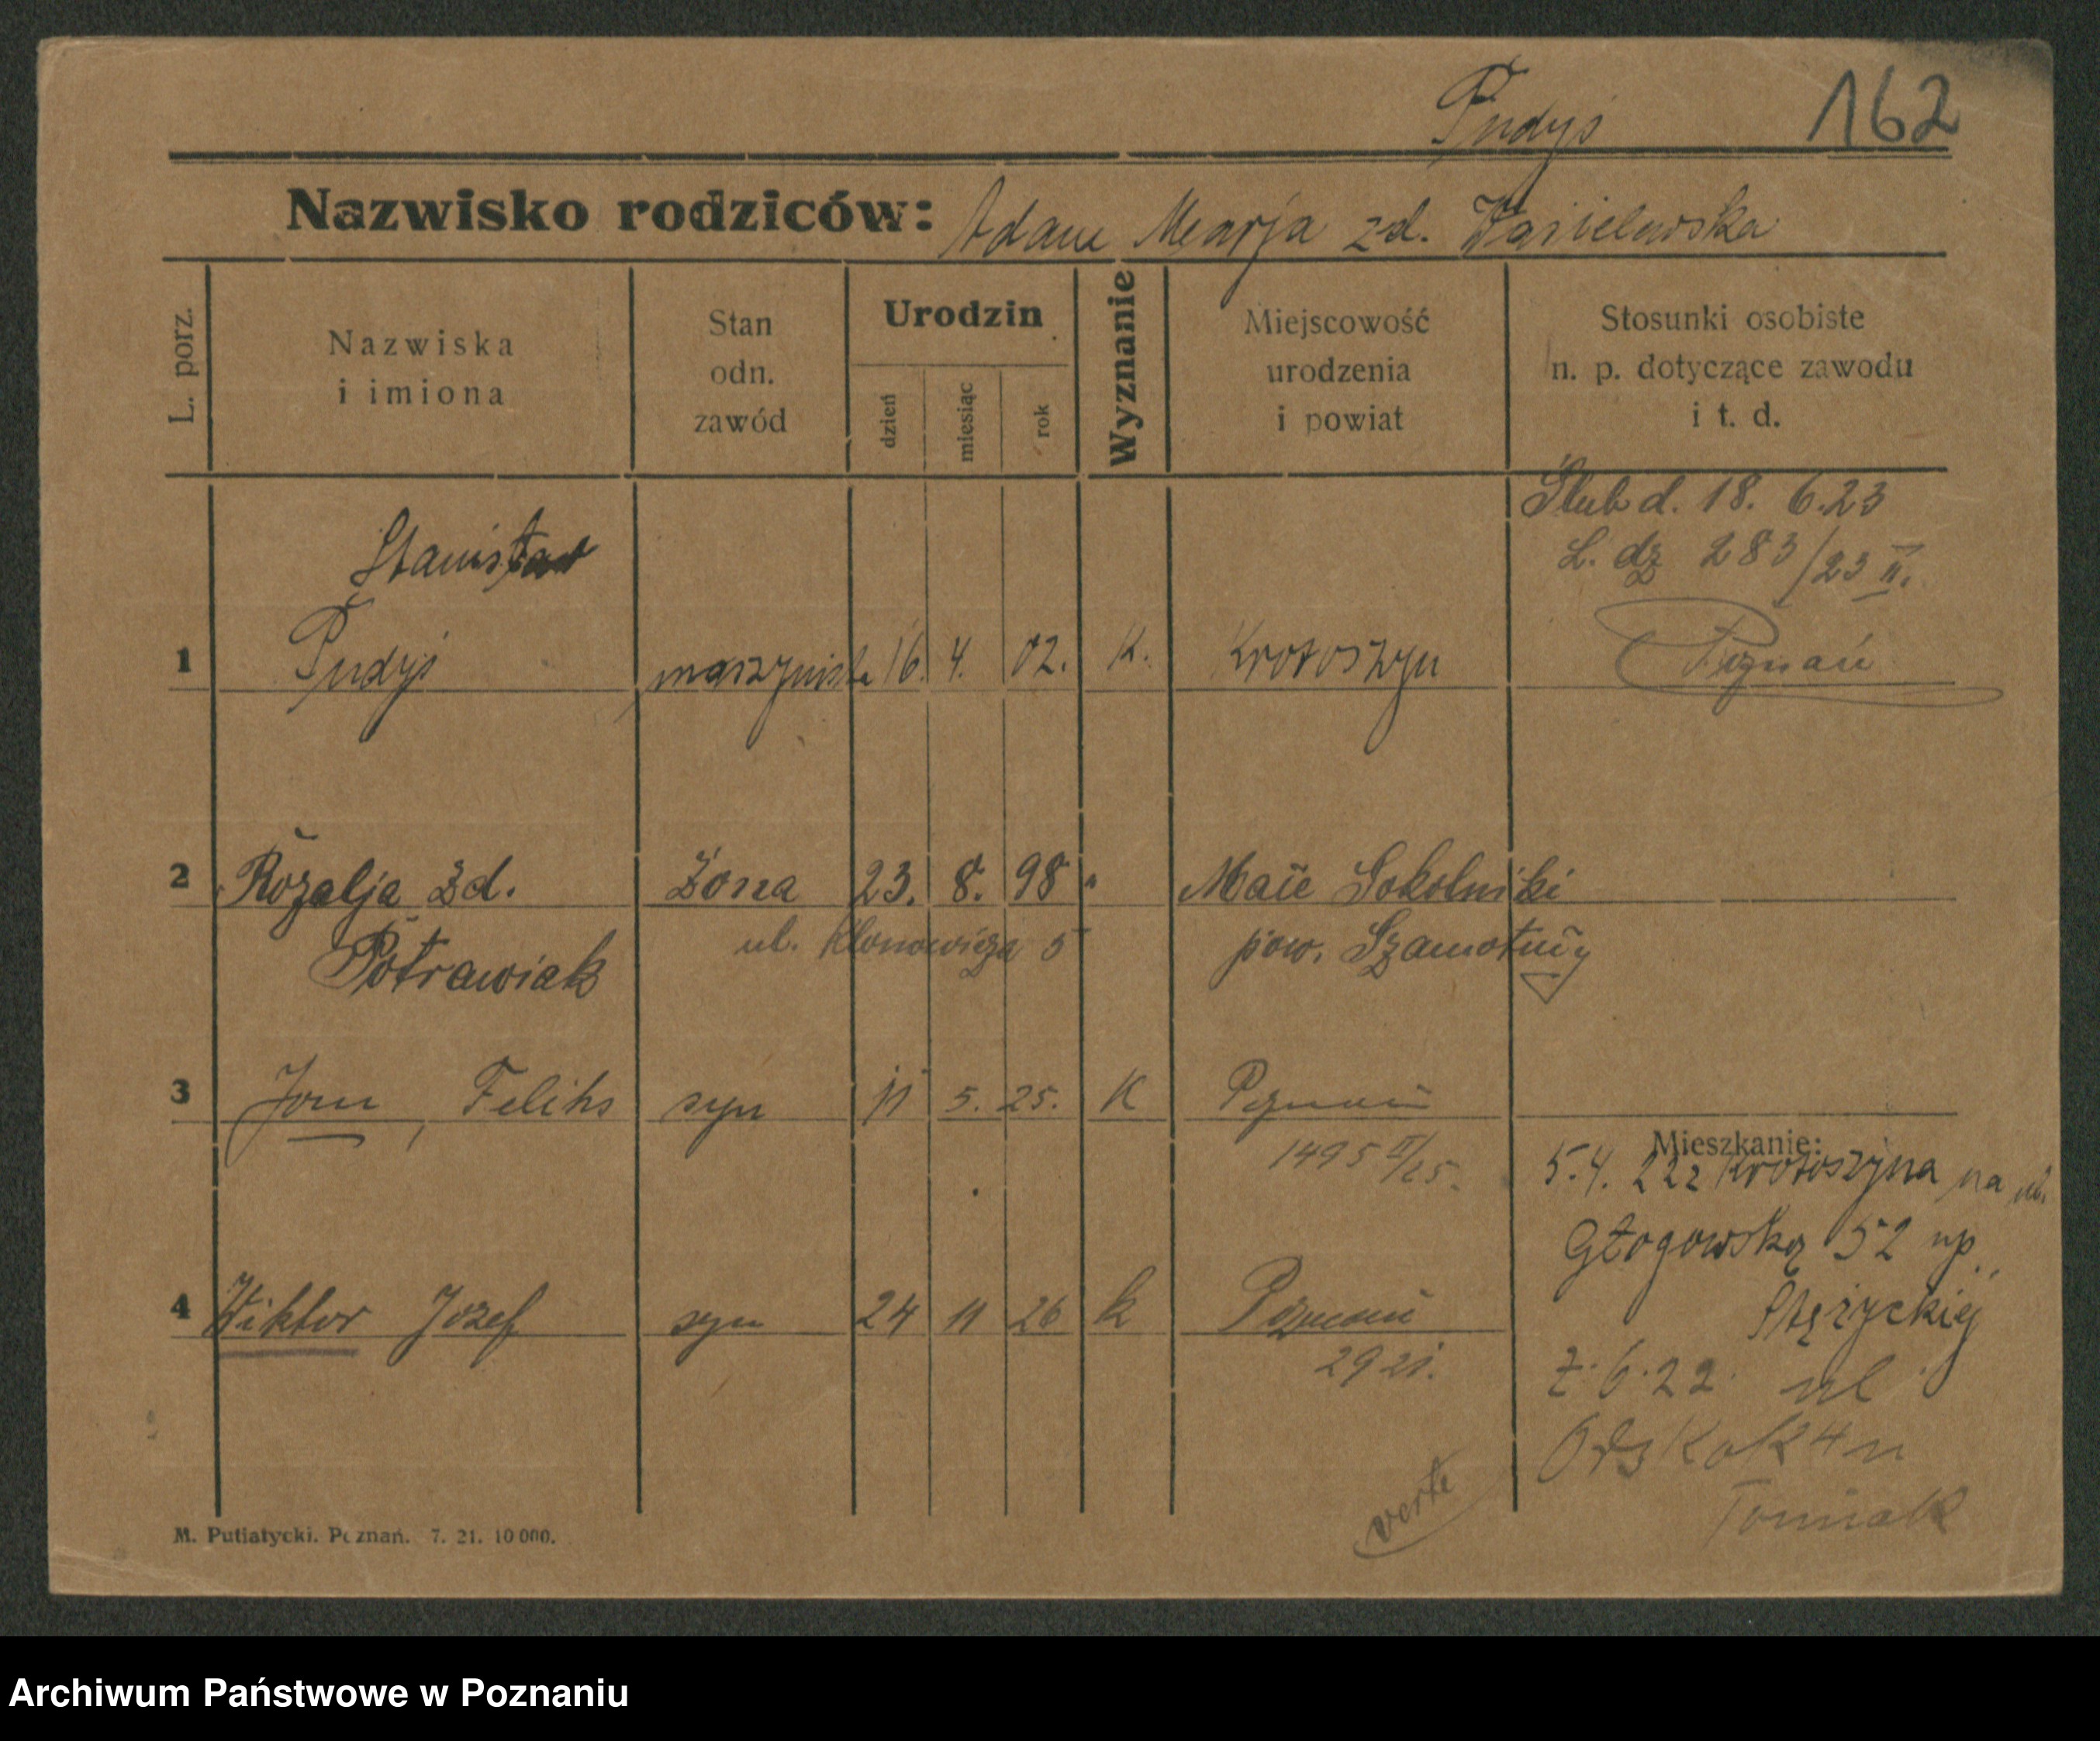 Pudyś 162
Nazwisko rodziców: Adam Marja zd. Wasielewska
L. porz.
Nazwiska
i imiona
Stan
odn.
zawód
Urodzin
dzień
miesiąc
rok
Wyznanie
Miejscowość
urodzenia
i powiat
Stosunki osobiste
n. p. dotyczące zawodu
i t. d.
Ślub d. 18. 6.23
L. dz 283/23 II.
Stanisław
1 Pudyś maszynista 16. 4. 02. K. Krotoszyn Poznań
2 Rozalja zd. żona 23. 8. 98 " Małe Sokolniki
Potrawiak ul. Klonowicza 5 pow. Szamotuły
3 Jan, Feliks syn 11 5. 25. K Poznań
1495 II/25.
Mieszkanie:
5.4.22 z Krotoszyna na ul.
Głogowską 52 up.
Stężyckiej
4 Wiktor Józef syn 24 11 26 k Poznań
2921.
6.22 ul
Tomiak
verte
M. Putiatycki. Poznań. 7. 21. 10 000.
Archiwum Państwowe w Poznaniu